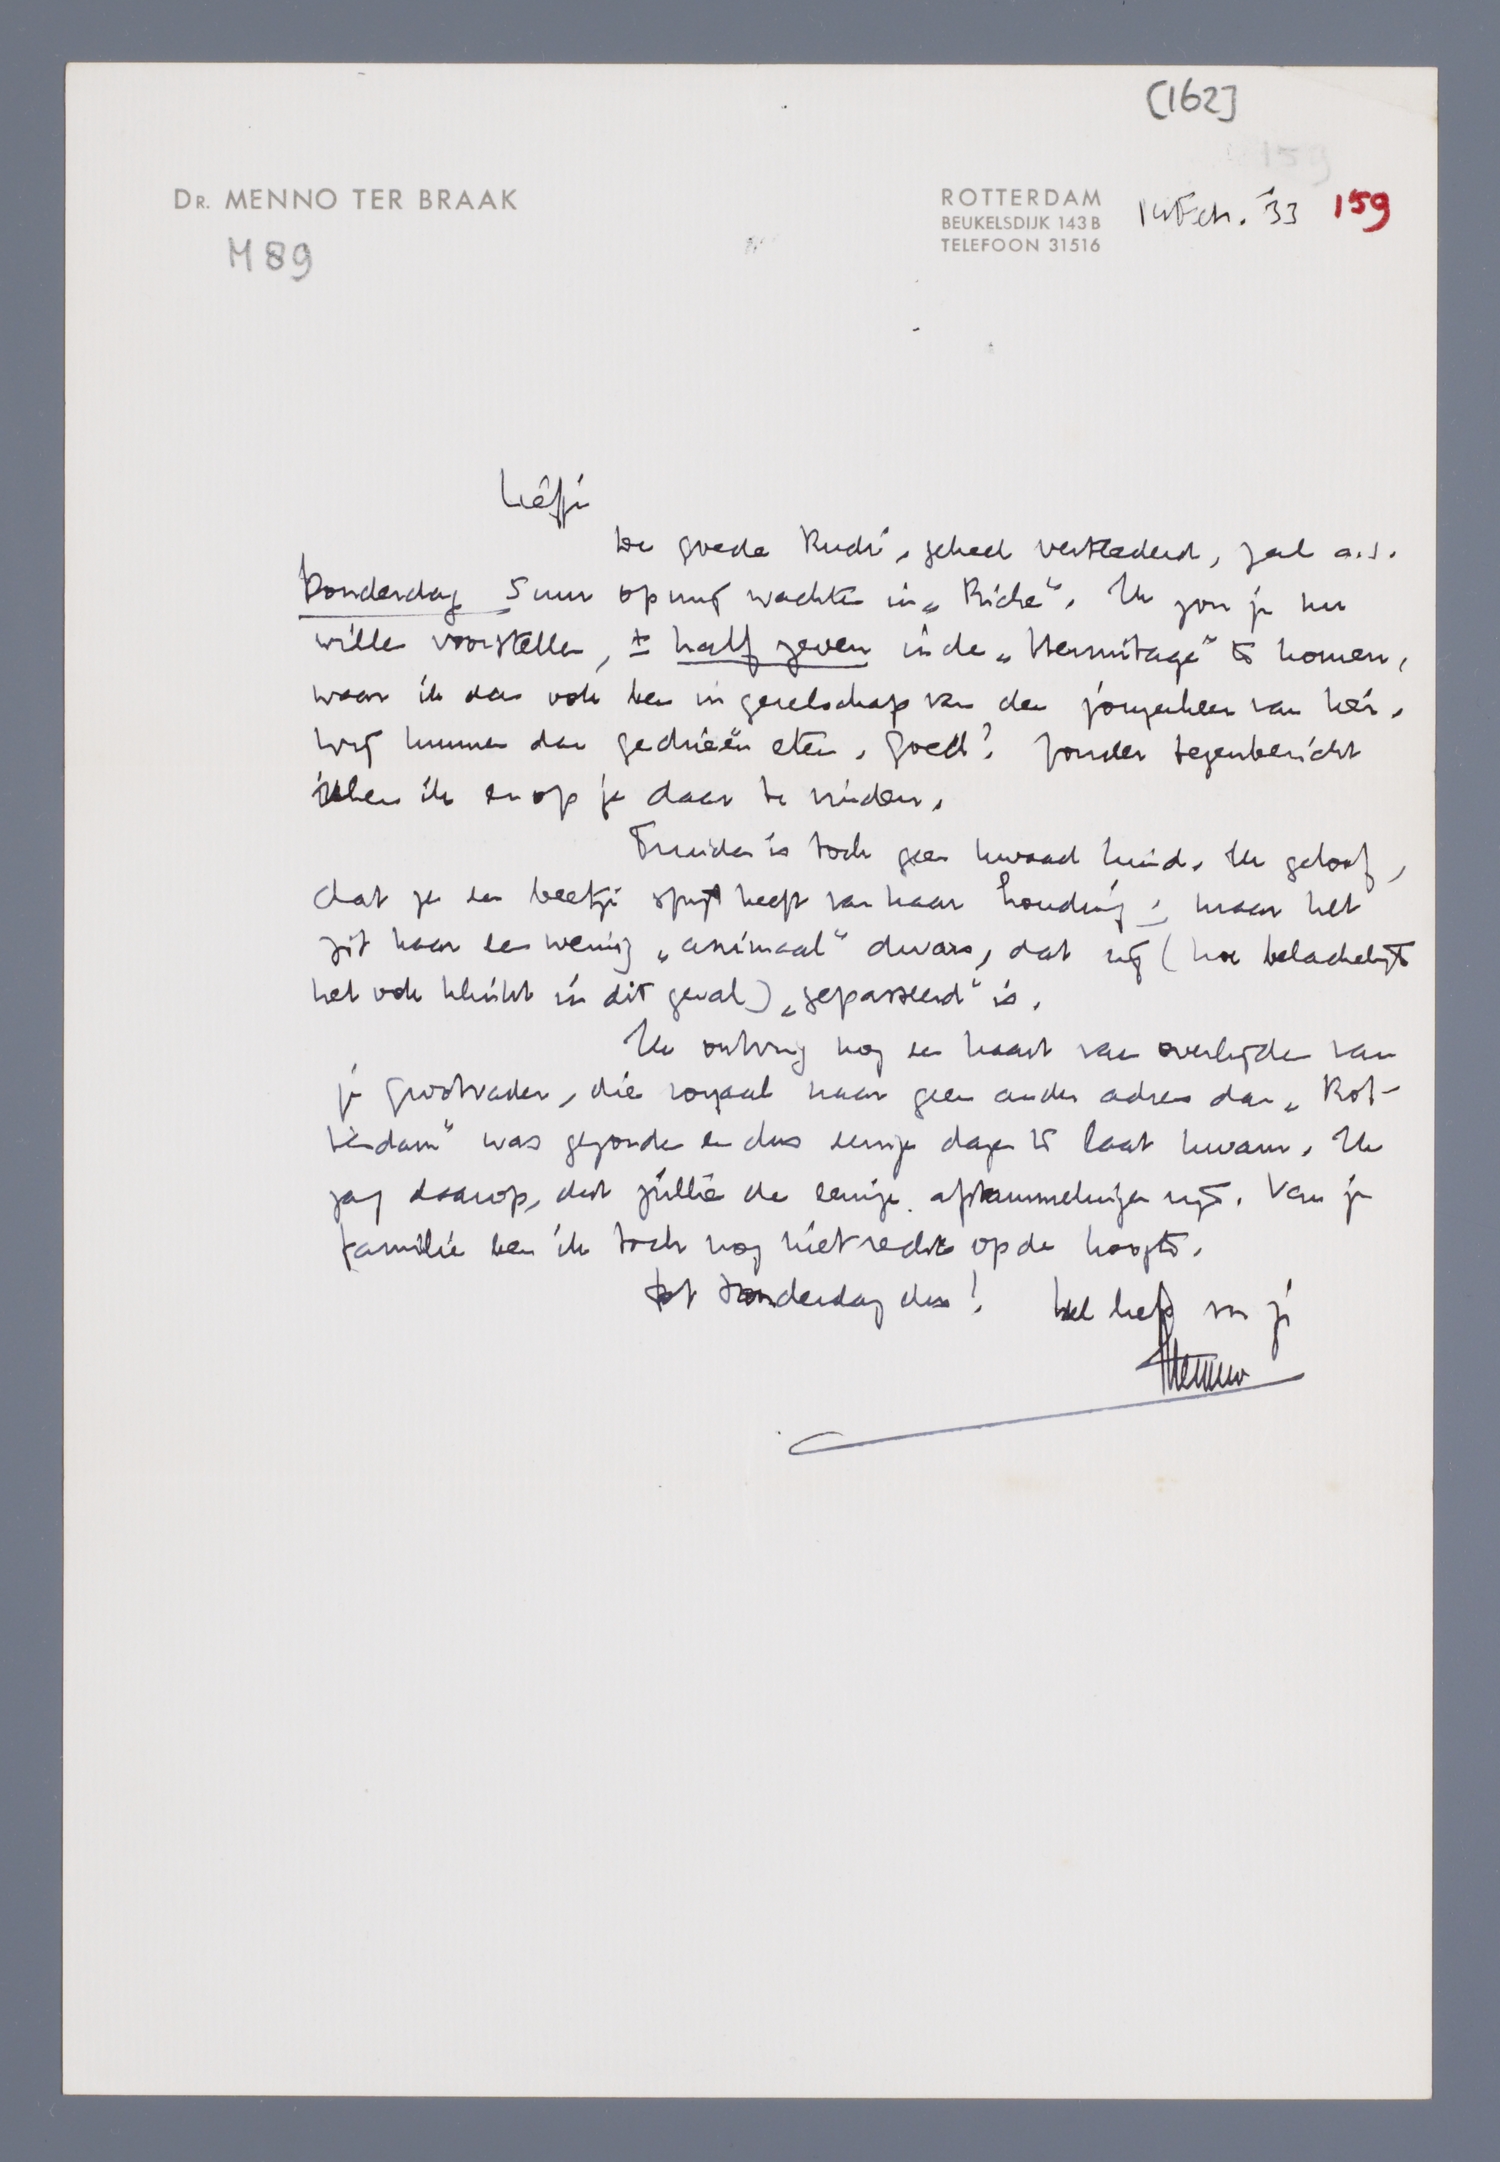 [162]
159
DR. MENNO TER BRAAK
ROTTERDAM
BEUKELSDIJK 143 B
TELEFOON 31516
Febr. '33
159
M 89
Liefje
De goede Rudi, geheel verkleederd, zal a.s.
Donderdag 5 uur op mij wachten in „Riche". Ik zou je nu
willen voorstellen, ± half zeven in de „Hermitage" te komen,
waar ik dan ook ben in gezelschap van den jongenheer van hei.
Wij kunnen dan gedrieën eten. Goed? Zonder tegenbericht
reken ik er op je daar te vinden.
Truida is toch geen kwaad kind. Ik geloof,
dat ze een beetje spijt heeft van haar houding; maar het
zit haar een weinig „animaal" dwars, dat zij (hoe belachelijk
het ook klinkt in dit geval) „gepasseerd" is.
Ik ontving nog een kaart van overlijden van
je grootvader, die royaal naar geen ander adres dan „Rot-
terdam" was gezonden en dus eenige dagen te laat kwam. Ik
zag daarop, dat jullie de eenige afstammelingen zijt. Van je
familie ben ik toch nog niet recht op de hoogte.
Tot Donderdag dus! Heel liefs van je
Menno